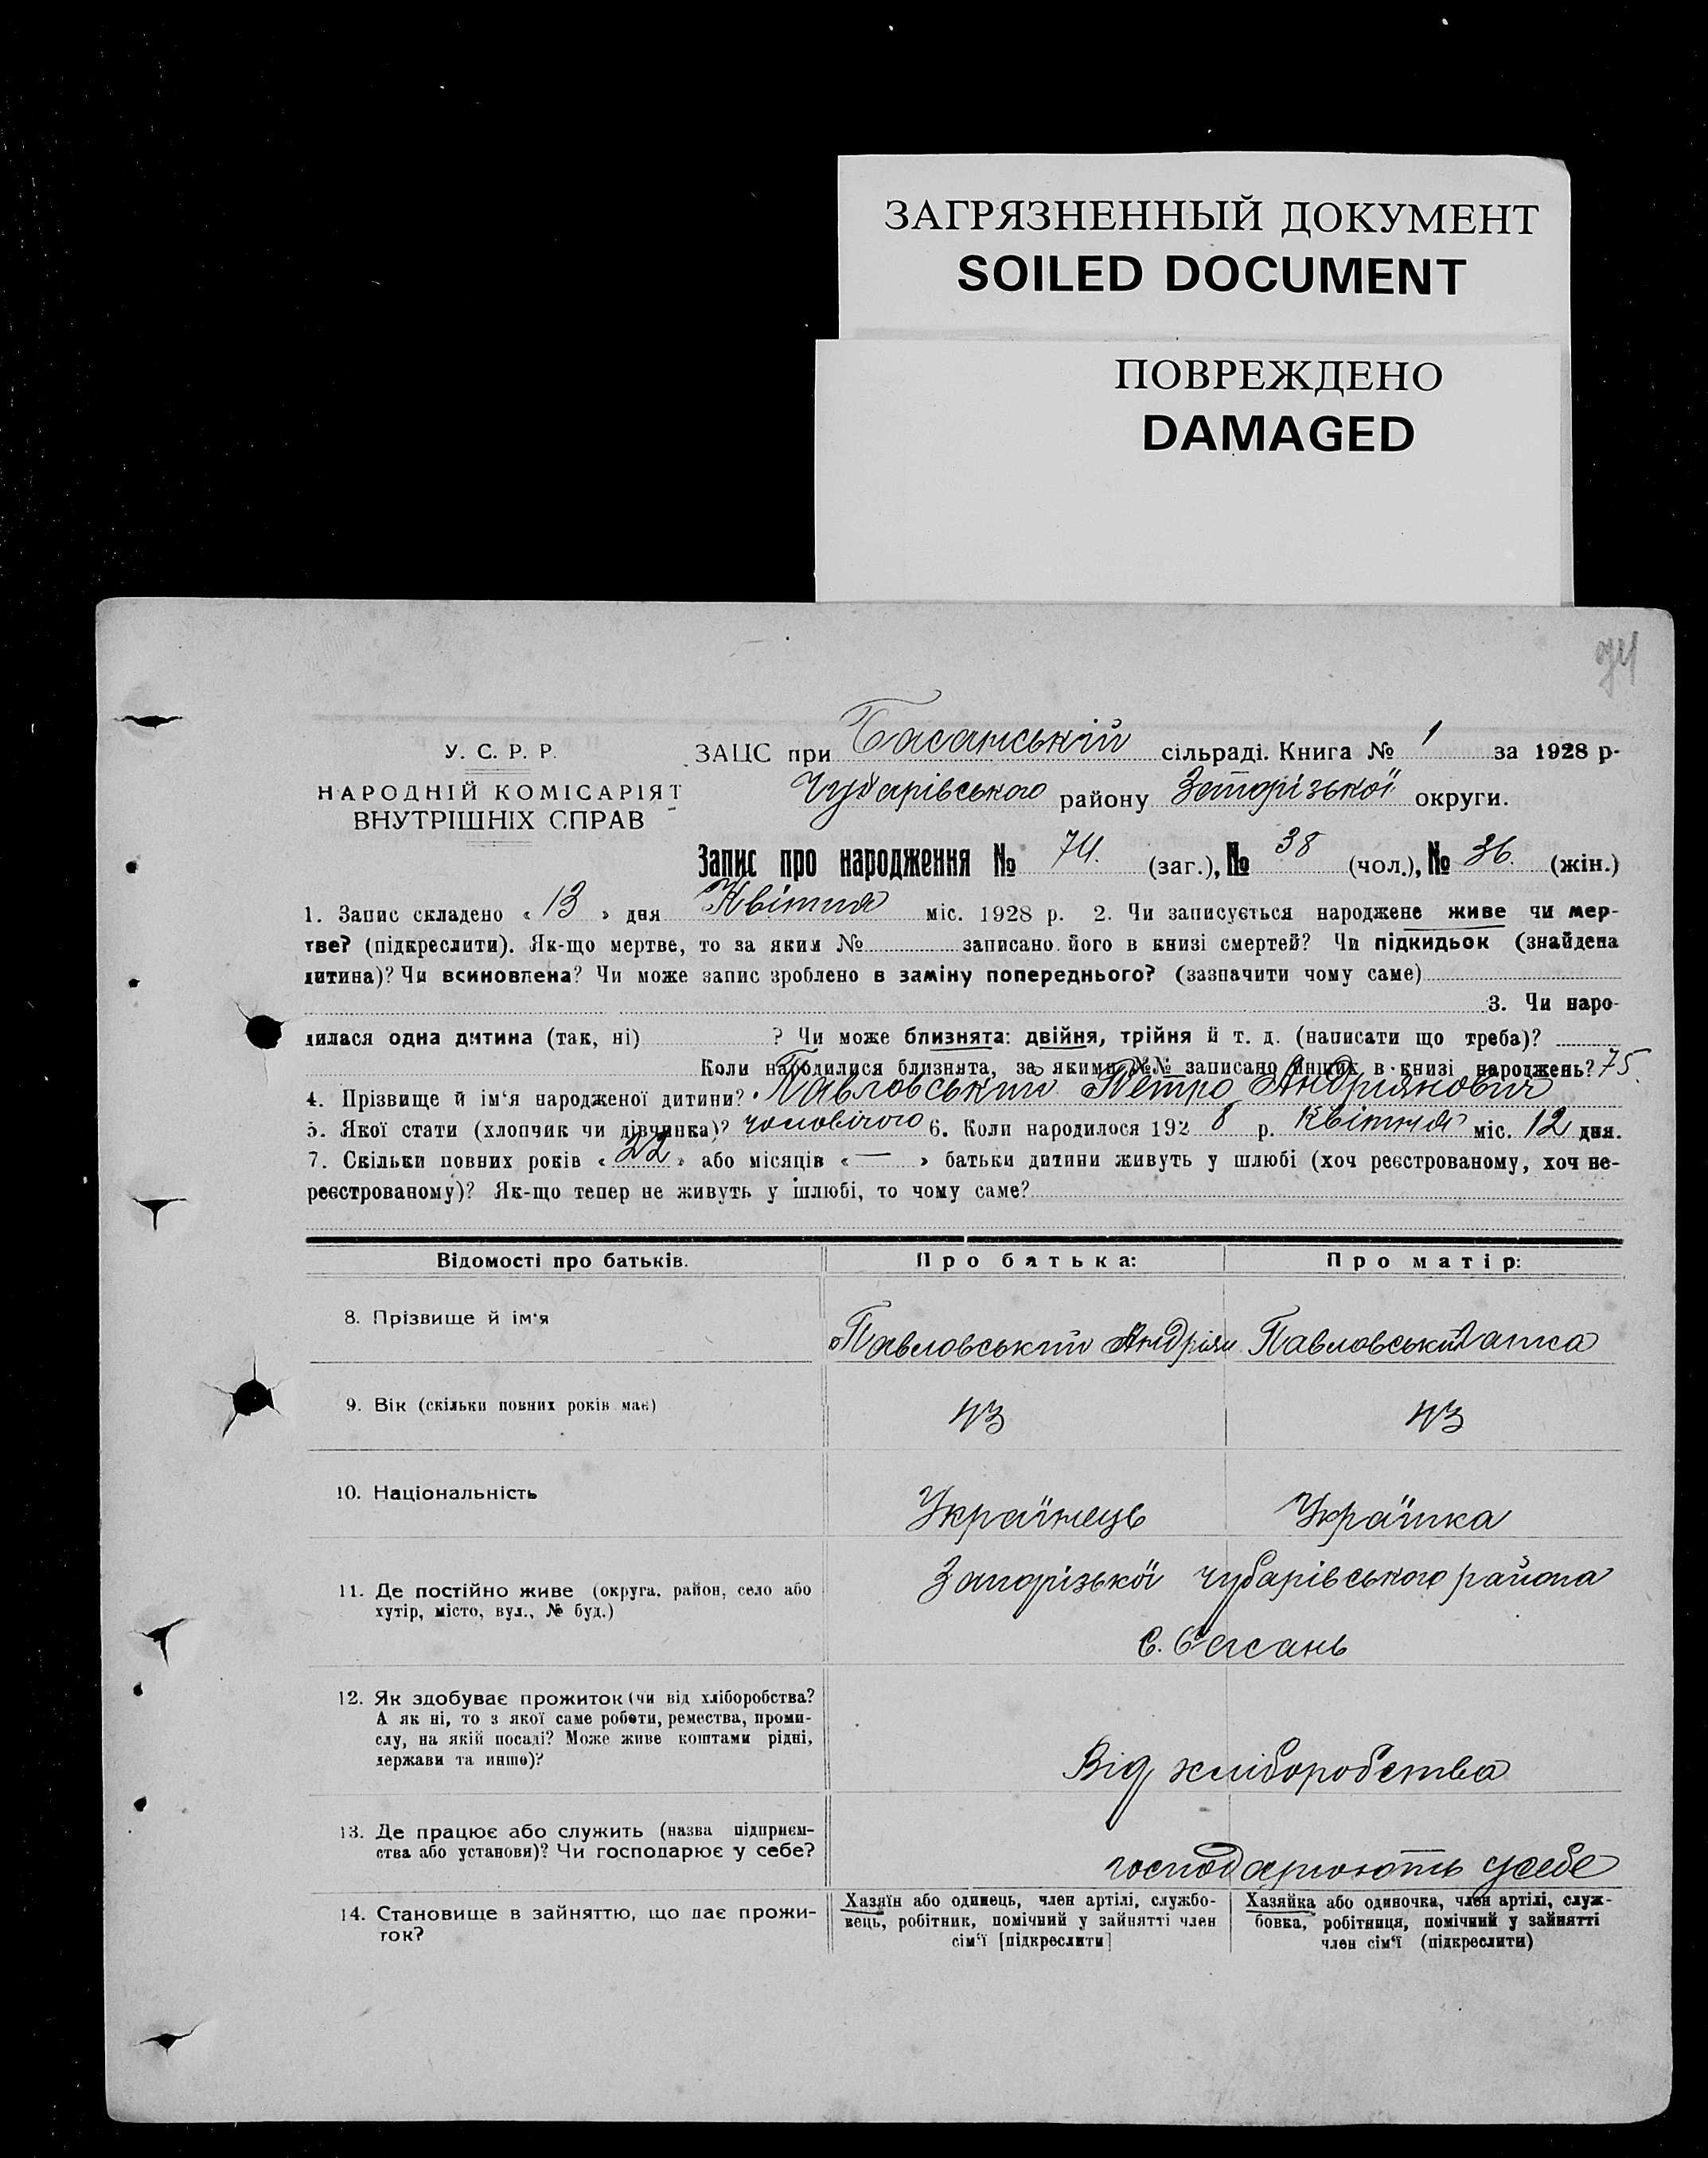 ЗАГРЯЗНЕННЫЙ ДОКУМЕНТ
SOILED DOCUMENT
ПОВРЕЖДЕНО
DAMAGED
74
У. С. Р. Р.
НАРОДНІЙ КОМІСАРІЯТ
ВНУТРІШНІХ СПРАВ
ЗАЦС при Басанській сільраді. Книга № 1 за 1928 р.
Чубарівського району Запорізької округи.
Запис про народження № 74. (заг.), № 38 (чол.), № 36. (жін.)
1. Запис складено « 13 » дня Квітня міс. 1928 р. 2. Чи записується народжене живе чи мер-
тве? (підкреслити). Як-що мертве, то за яким № записано його в книзі смертей? Чи підкидьок (знайдена
дитина)? Чи всиновлена? Чи може запис зроблено в заміну попереднього? (зазначити чому саме)
3. Чи наро-
дилася одна дитина (так, ні) ? Чи може близнята: двійня, трійня й т. д. (написати що треба)?
Коли народилися близнята, за якими №№ записано инших в книзі народжень? 75.
4. Прізвище й ім'я народженої дитини? Павловський Петро Андріянович
5. Якої стати (хлопчик чи дівчинка)? чоловічого 6. Коли народилося 192 8 р. Квітня міс. 12 дня.
7. Скільки повних років « 22 » або місяців « — » батьки дитини живуть у шлюбі (хоч реєстрованому, хоч не-
реєстрованому)? Як-що тепер не живуть у шлюбі, то чому саме?
Відомості про батьків. Про батька: Про матір:
8. Прізвище й ім'я Павловський Андріян Павловська
9. Вік (скільки повних років має) 43 43
10. Національність Українець Українка
11. Де постійно живе (округа, район, село або
хутір, місто, вул., № буд.)
Запорізької Чубарівського района
с. Басань
12. Як здобуває прожиток (чи від хліборобства?
А як ні, то з якої саме роботи, ремества, проми-
слу, на якій посаді? Може живе коштами рідні,
держави та инше)?
Від хліборобства
13. Де працює або служить (назва підприєм-
ства або установи)? Чи господарює у себе?
господарюють у себе
14. Становище в зайняттю, що дає прожи-
ток?
Хазяїн або одинець, член артілі, службо-
вець, робітник, помічний у зайнятті член
сім'ї [підкреслити]
Хазяйка або одиночка, член артілі, служ-
бовка, робітниця, помічний у зайнятті
член сім'ї (підкреслити)